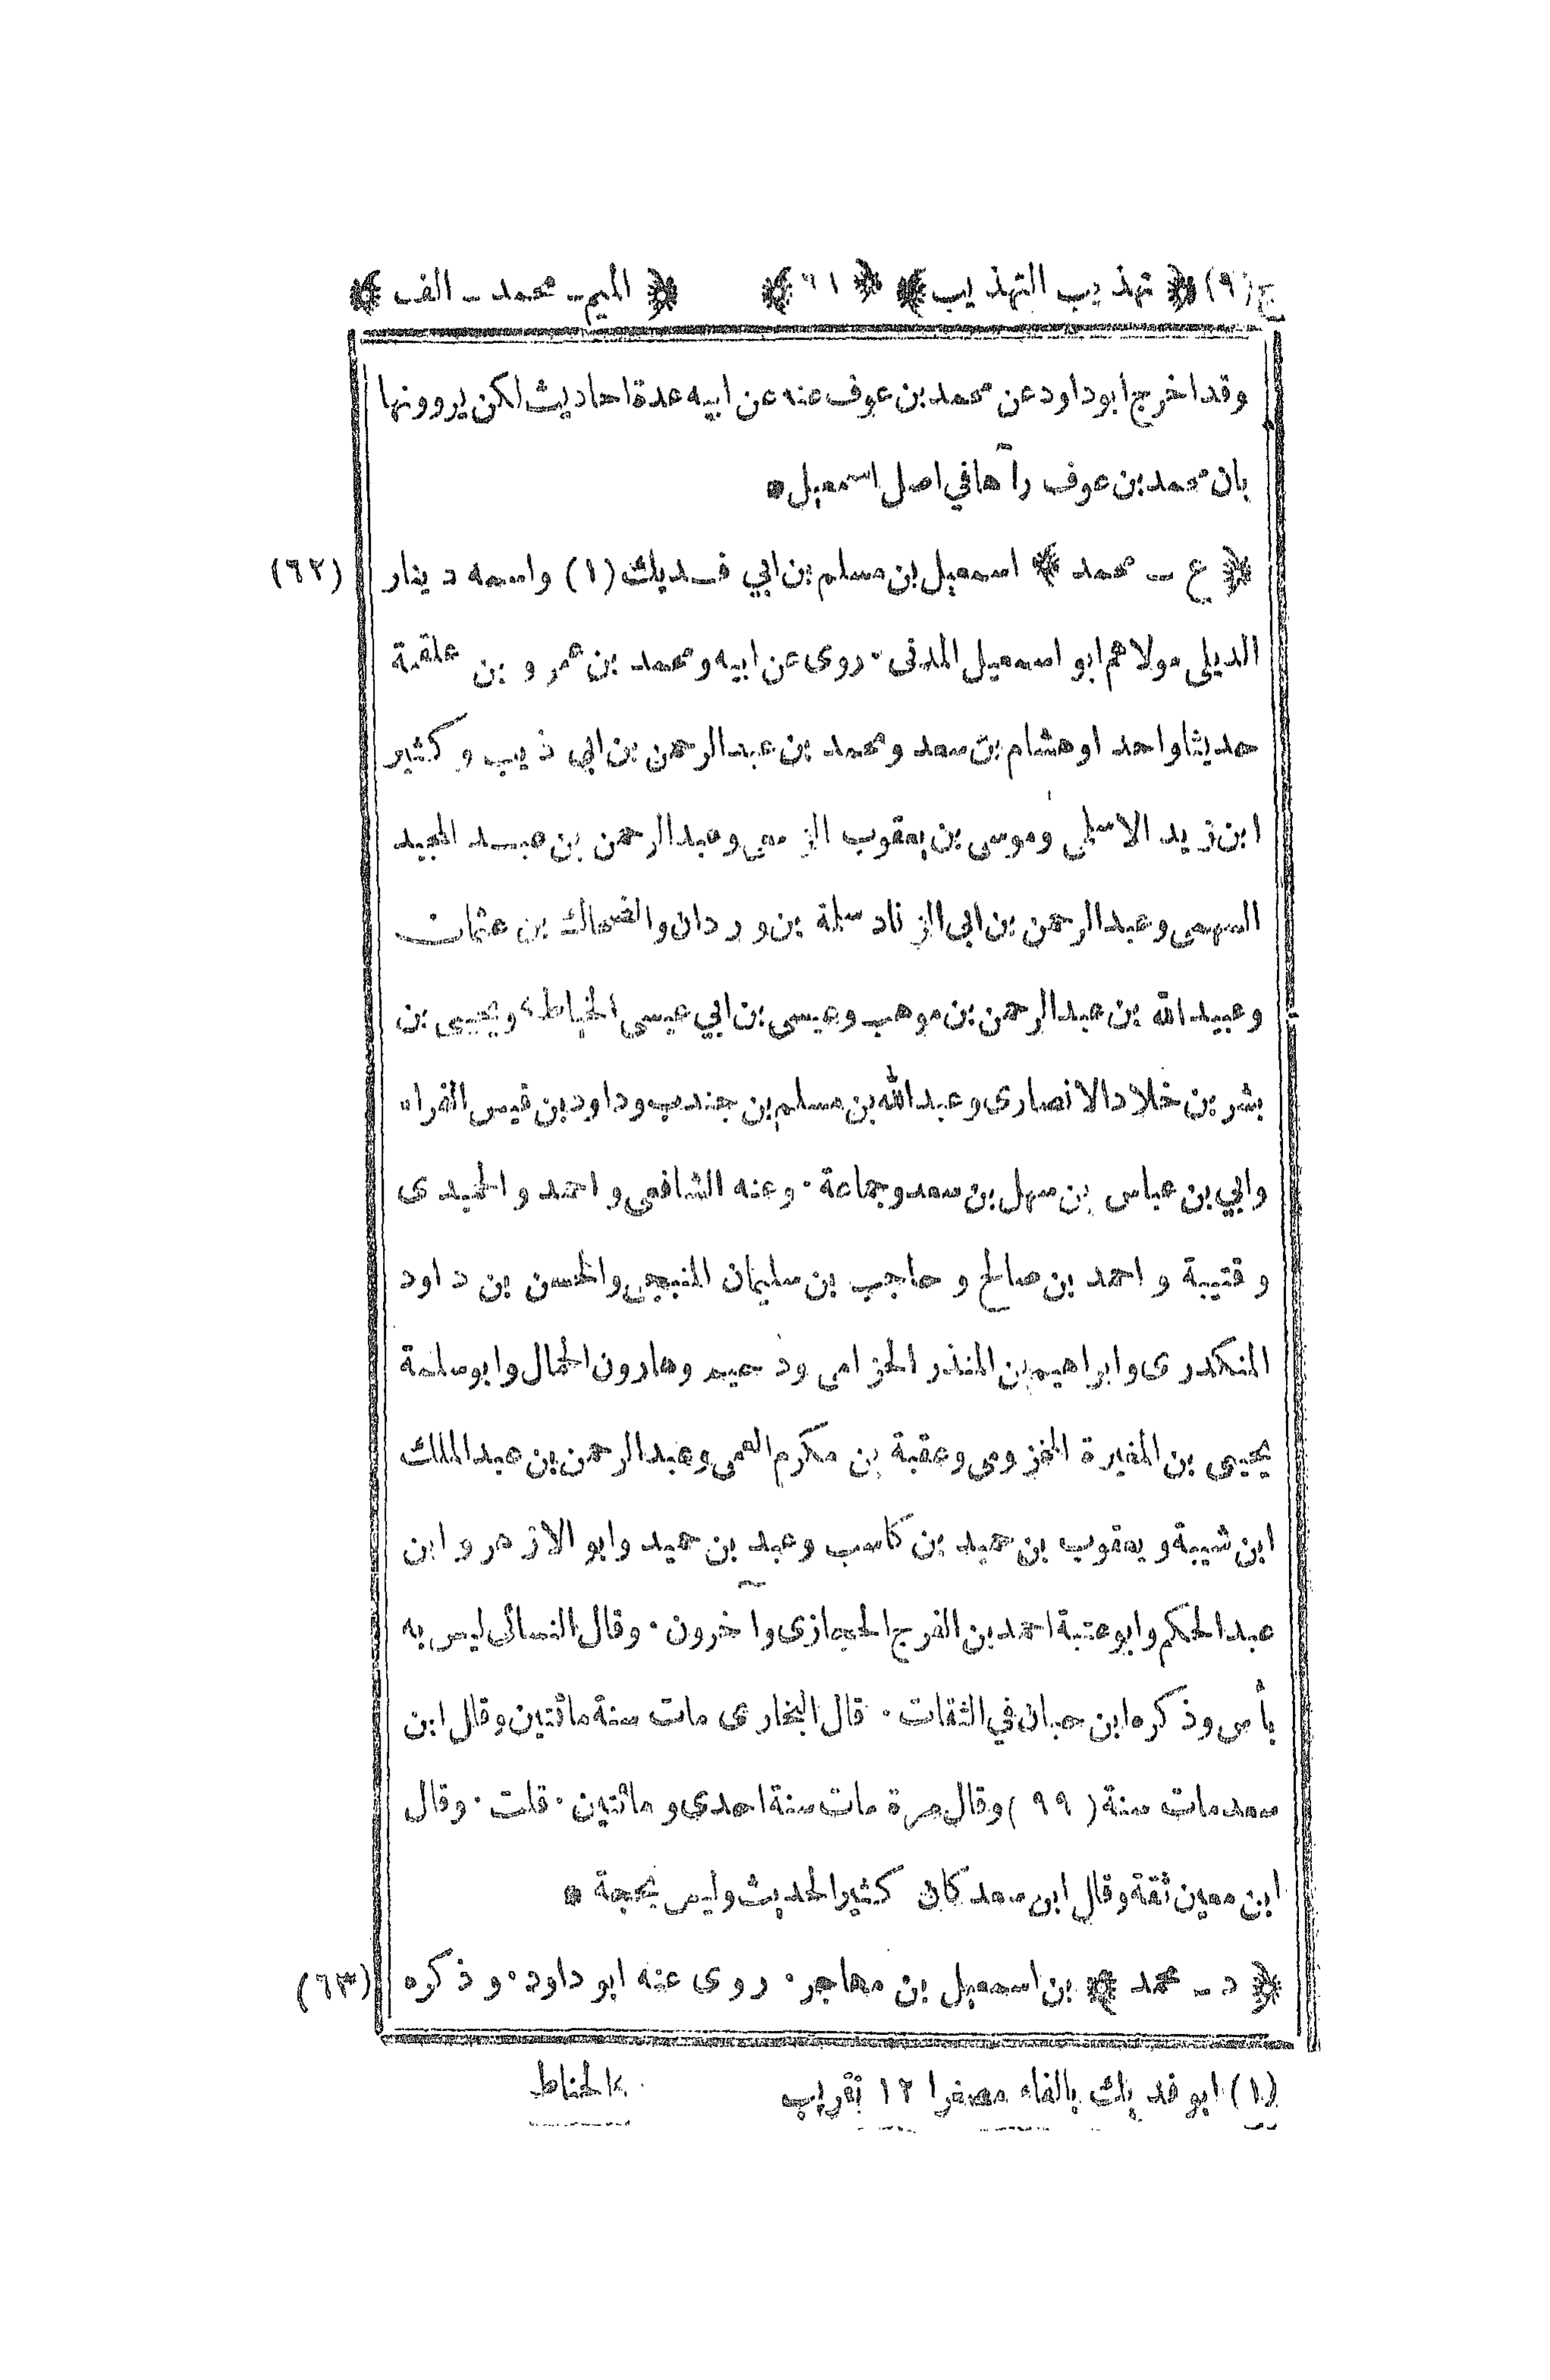 ج(٩) ﴿ تهذيب التهذيب ﴾ ﴿ ٦١ ﴾ ﴿ الميم - محمد - الف ﴾
وقد اخرج ابوداود عن محمد بن عوف عنه عن ابيه عدة احاديث لكن يروونها
بان محمد بن عوف رآها في اصل اسمعيل *
(٦٢) ﴿ ع - محمد ﴾ اسمعيل بن مسلم بن ابي فديك (١) واسمه دينار
الديلي مولاهم ابو اسمعيل المدنى ٠ روى عن ابيه ومحمد بن عمرو بن علقمة
حديثا واحدا وهشام بن سعد ومحمد بن عبدالرحمن بن ابي ذيب وكثير
ابن زيد الاسلمي وموسى بن يعقوب الزمعي وعبدالرحمن بن عبد المجيد
السهمى وعبدالرحمن بن ابى الزناد سلمة بن وردان والضحاك بن عثمان
وعبيدالله بن عبدالرحمن بن موهب وعيسى بن ابي عيسى الخياط ٧ ويحيى بن
بشر بن خلاد الانصارى وعبدالله بن مسلم بن جندب وداود بن قيس الفراء
وابي بن عباس بن سهل بن سعد وجماعة ٠ وعنه الشافعى واحمد والحميدى
وقتيبة واحمد بن صالح وحاجب بن سليمان المنبجى والحسن بن داود
المنكدرى وابراهيم بن المنذر الحزامى ودحيم وهارون الحمال وابو سلمة
يحيى بن المغيرة المخزومى وعقبة بن مكرم العمى وعبدالرحمن بن عبدالملك
ابن شيبة ويعقوب بن حميد بن كاسب وعبد بن حميد وابو الازهر وابن
عبدالحكم وابو عتبة احمد بن الفرج الحجازى وآخرون ٠ وقال النسائى ليس به
بأس وذكره ابن حبان في الثقات ٠ قال البخارى مات سنة مائتين وقال ابن
سعد مات سنة (٩٩) وقال مرة مات سنة احدى ومائتين ٠ قلت ٠ وقال
ابن معين ثقة وقال ابن سعد كان كثير الحديث وليس بحجة *
(٦٣) ﴿ د - محمد ﴾ بن اسمعيل بن مهاجر ٠ روى عنه ابو داود ٠ وذكره
(١) ابو فديك بالفاء مصغرا ١٢ تقريب الحناط